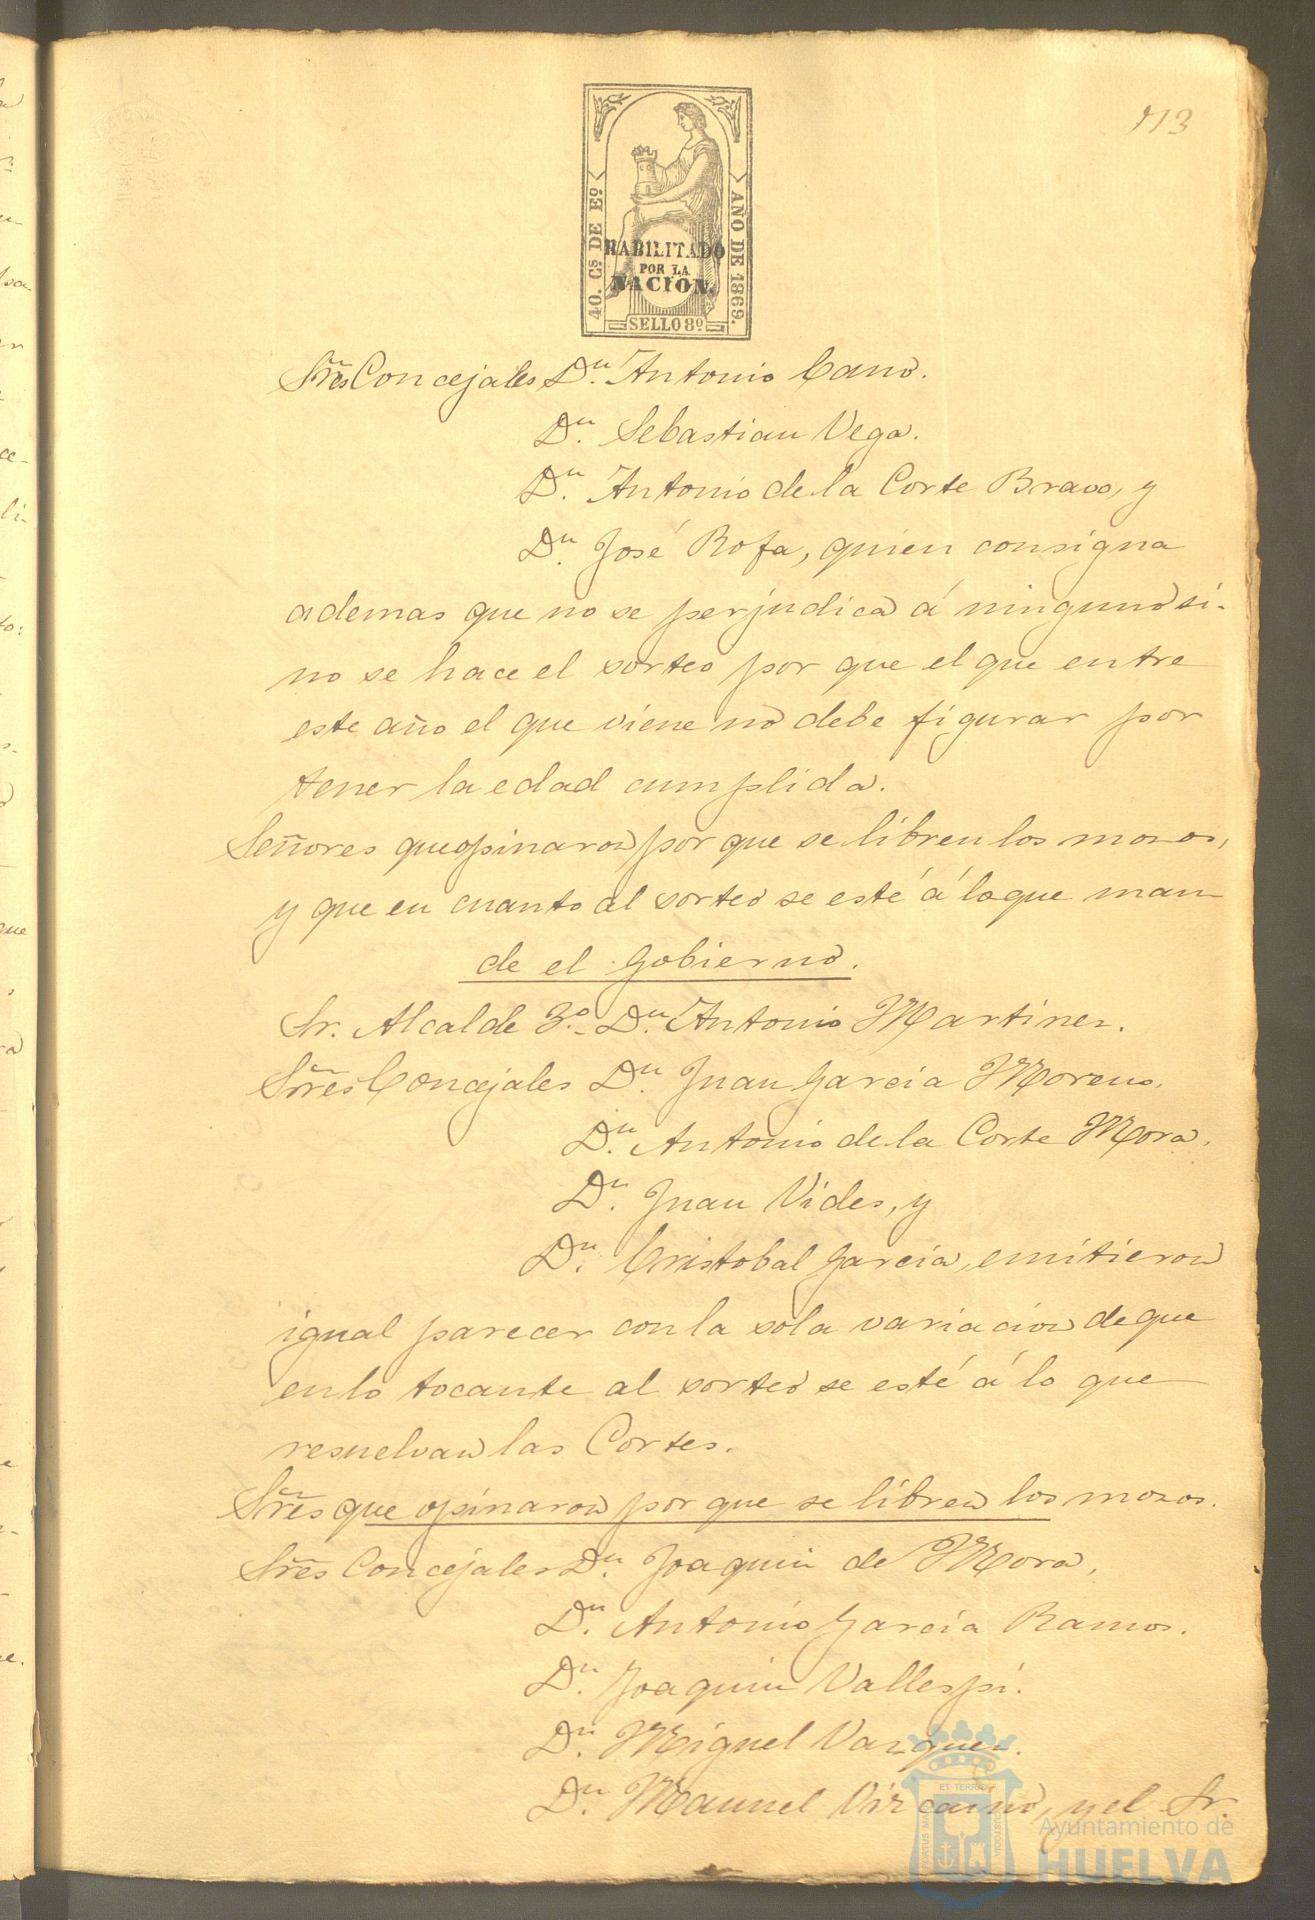 113
40. Cs DE Eº
AÑO DE 1869.
HABILITADO
POR LA
NACION.
SELLO 8º
Sres Concejales Dn. Antonio Cano.
Dn. Sebastian Vega.
Dn. Antonio de la Corte Bravo, y
Dn. José Rofa, quien consigna
ademas que no se perjudica á ninguno si-
no se hace el sorteo por que el que entre
este año el que viene no debe figurar por
tener la edad cumplida.
Señores que opinaron por que se libren los mozos,
y que en cuanto al sorteo se esté á lo que man
de el Gobierno.
Sr. Alcalde 3º Dn. Antonio Martinez.
Sres Concejales Dn. Juan Garcia Moreno.
Dn. Antonio de la Corte Mora.
Dn. Juan Vides, y
Dn. Cristobal Garcia, emitieron
igual parecer con la sola variacion de que
en lo tocante al sorteo se esté á lo que
resuelvan las Cortes.
Sres que opinaron por que se libren los mozos.
Sres Concejales Dn. Joaquin de Mora.
Dn. Antonio Garcia Ramos.
Dn. Joaquin Vallespi.
Dn. Miguel Vazquez.
Dn. Manuel Vizcaino, y el Sr.
Ayuntamiento de
HUELVA